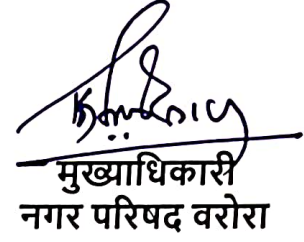 मुख्याधिकारी
नगर परिषद वरोरा